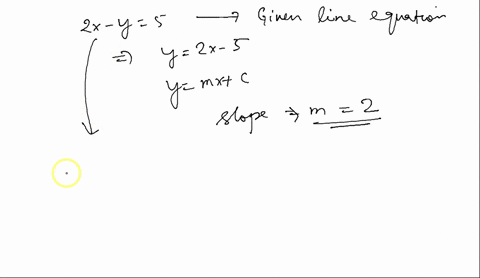 2x-y=5 → Given line equation
⇒ y=2x-5
y=mx+c
slope → m = 2